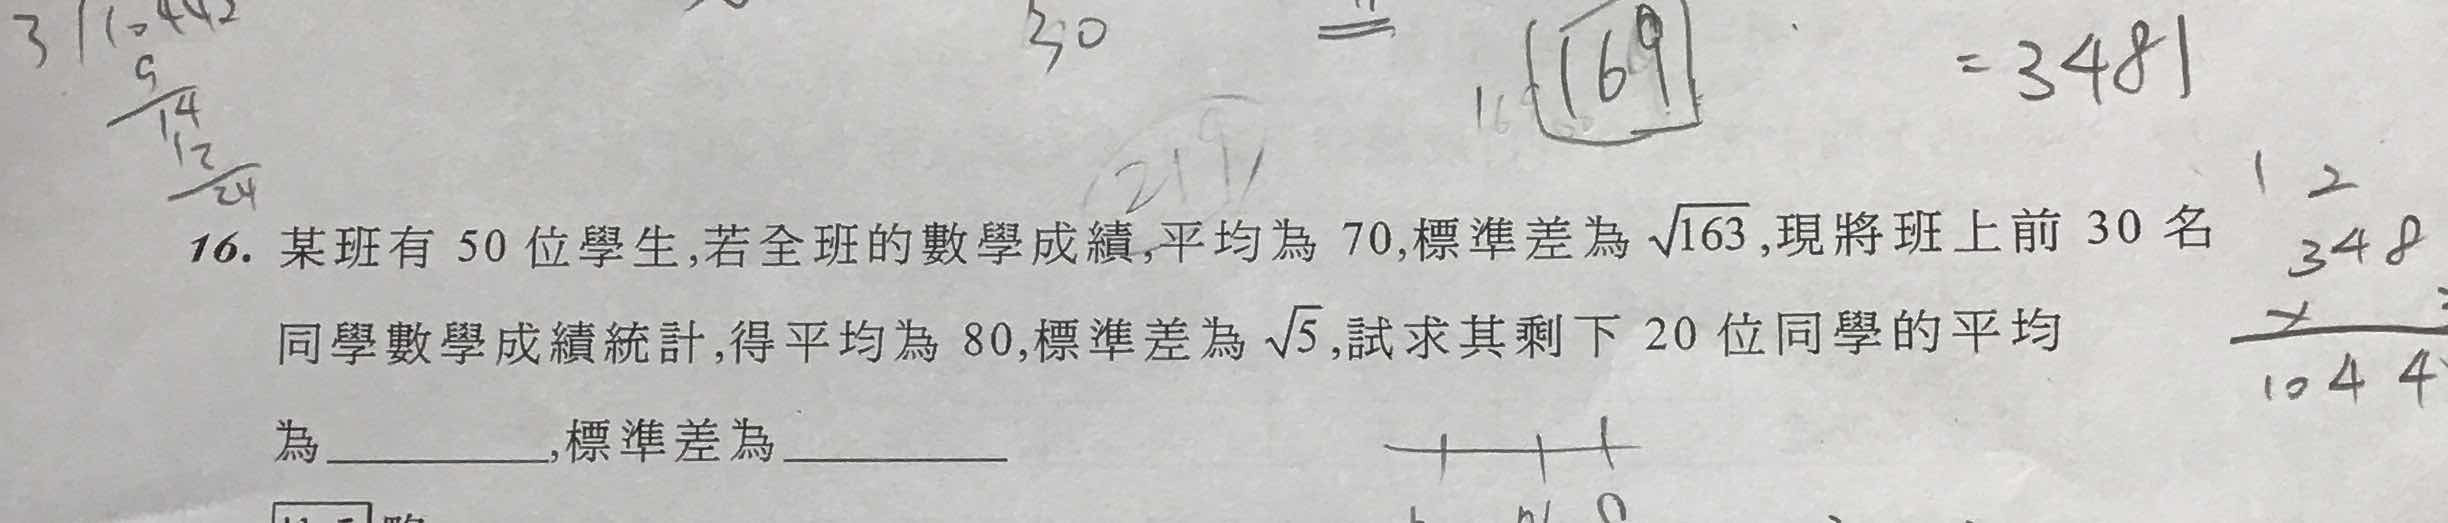 3 10442
9
14
12
24
30
169
= 3481
219
16. 某班有 50 位學生,若全班的數學成績,平均為 70,標準差為 √163,現將班上前 30 名
同學數學成績統計,得平均為 80,標準差為 √5,試求其剩下 20 位同學的平均
為________,標準差為________
1 2
348
×
1044